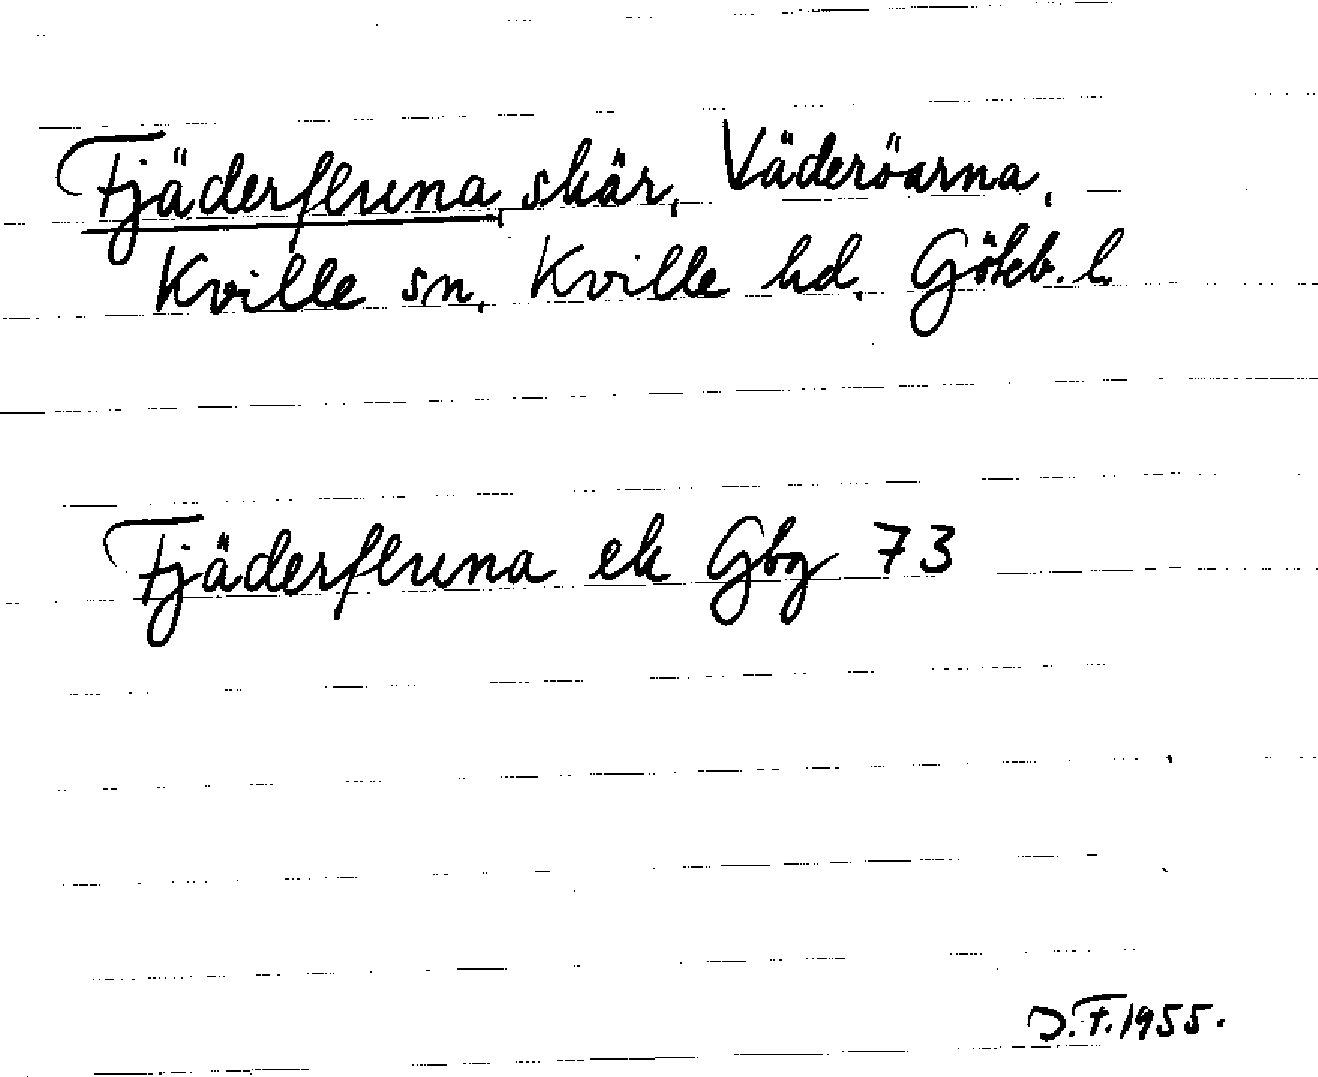 Fjäderfluna, skär, Väderöarna,
Kville sn, Kville hd, Göteb. l.
Fjäderfluna ek Gbg 73
D.F. 1955.